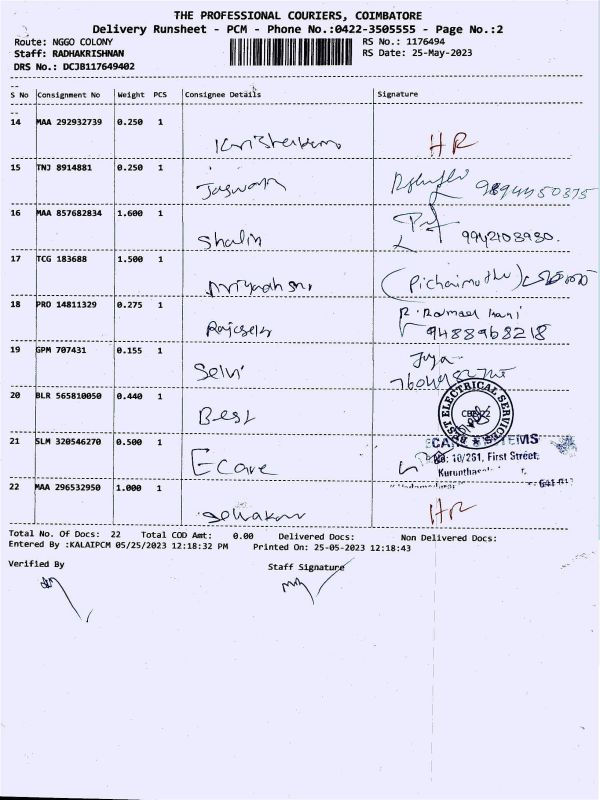 THE PROFESSIONAL COURIERS, COIMBATORE
Delivery Runsheet - PCM - Phone No.:0422-3505555 - Page No.:2
Route: NGGO COLONY RS No.: 1176494
Staff: RADHAKRISHNAN RS Date: 25-May-2023
DRS No.: DCJB117649402
--
S No Consignment No Weight PCS Consignee Details Signature
--
14 MAA 292932739 0.250 1
HR
15 TNJ 8914881 0.250 1
Jaswan
16 MAA 857682834 1.600 1
Shalin 9942103930.
17 TCG 183688 1.500 1
(Pichaimuthu)
18 PRO 14811329 0.275 1
9488968218
19 GPM 707431 0.155 1
Selvi Jaya
20 BLR 565810050 0.440 1
Best
BEST ELECTRICAL SERVICES
21 SLM 320546270 0.500 1
Ecare
No: 10/261, First Street,
22 MAA 296532950 1.000 1
HR
Total No. Of Docs: 22 Total COD Amt: 0.00 Delivered Docs: Non Delivered Docs:
Entered By :KALAIPCM 05/25/2023 12:18:32 PM Printed On: 25-05-2023 12:18:43
Verified By Staff Signature